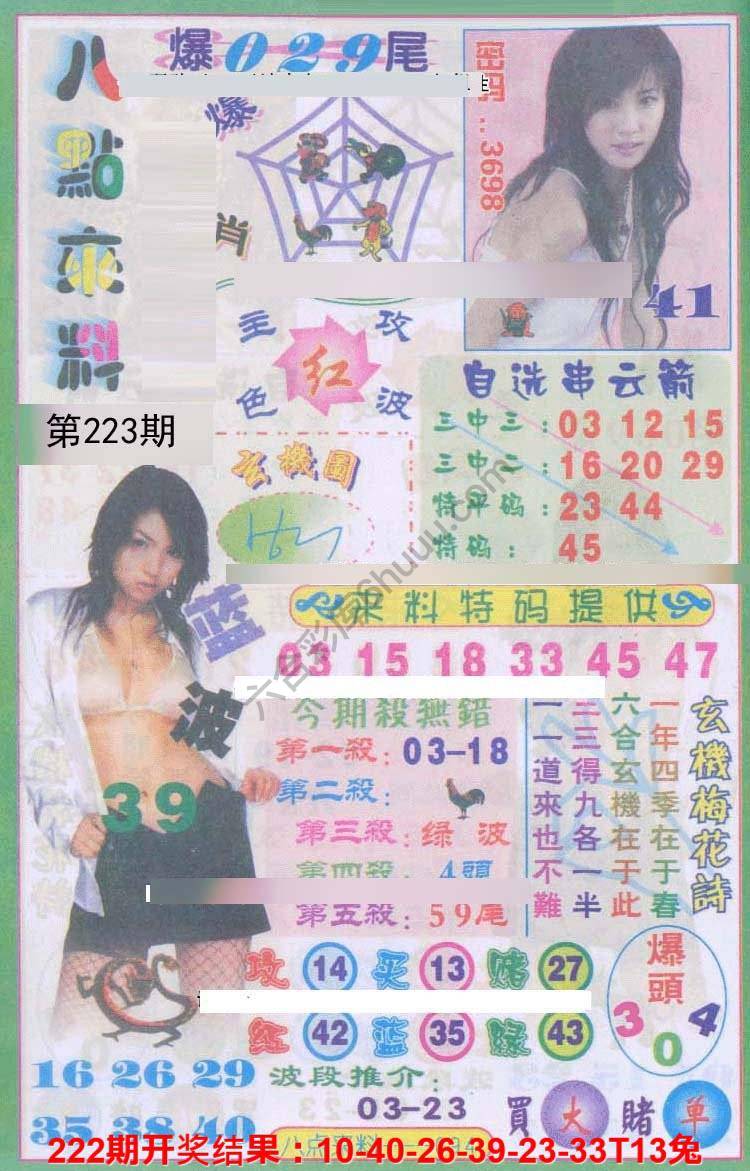 八點來料
爆029尾
爆
肖
密码..3698
41
主攻
红
色波
第223期
玄機圖
自选串云箭
三中三：03 12 15
三中二：16 20 29
特平码：23 44
特码：45
來料特码提供
03 15 18 33 45 47
蓝波
39
今期殺無錯
第一殺：03-18
第二殺：
第三殺：绿波
第四殺：4頭
第五殺：59尾
玄機梅花詩
一年四季在于春
六合玄機在于此
三三得九各一半
一一道來也不難
攻 14 买 13 赌 27
红 42 蓝 35 绿 43
爆頭
3 0 4
16 26 29
35 38 40
波段推介：
03-23
買大賭单
八点來料
222期开奖结果：10-40-26-39-23-33T13兔